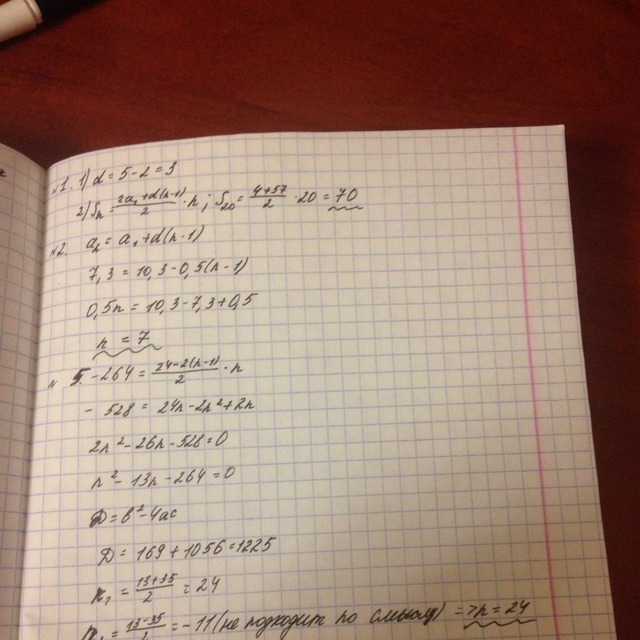 №1. 1) d = 5 - 2 = 3
2) Sₙ = (2a₁ + d(n-1))/2 · n ; S₂₀ = (4+57)/2 · 20 = 70
№2. aₙ = a₁ + d(n-1)
7,3 = 10,3 - 0,5(n-1)
0,5n = 10,3 - 7,3 + 0,5
n = 7
№ 5. -264 = (24-2(n-1))/2 · n
- 528 = 24n - 2n² + 2n
2n² - 26n - 528 = 0
n² - 13n - 264 = 0
D = b² - 4ac
D = 169 + 1056 = 1225
n₁ = (13+35)/2 = 24
= (13-35)/ = -11 (не подходит по смыслу) => n = 24